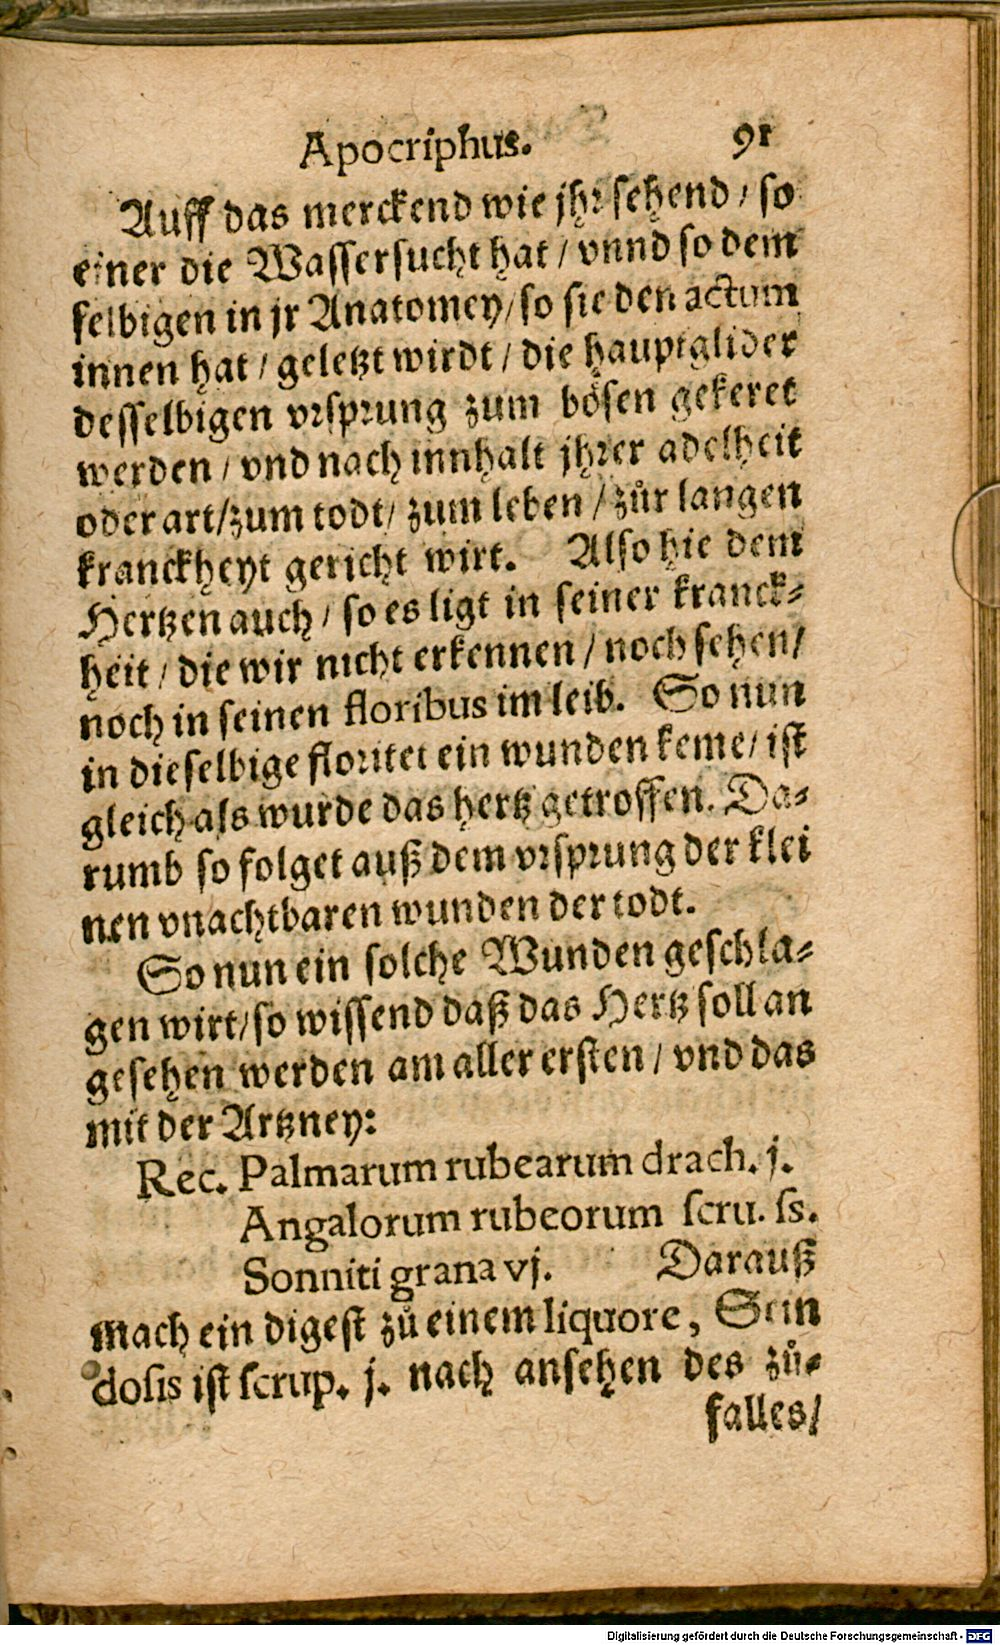 Apocriphus. 91
Auff das merckend wie jhr sehend / so
einer die Wassersucht hat / vnnd so dem
selbigen in jr Anatomey / so sie den actum
innen hat / geletzt wirdt / die hauptglider
desselbigen vrsprung zum bösen gekeret
werden / vnd nach innhalt jhrer adelheit
oder art / zum todt / zum leben / zůr langen
kranckheyt gericht wirt. Also hie dem
Hertzen auch / so es ligt in seiner kranck-
heit / die wir nicht erkennen / noch sehen /
noch in seinen floribus im leib. So nun
in dieselbige floritet ein wunden keme / ist
gleich als wurde das hertz getroffen. Da-
rumb so folget auß dem vrsprung der klei
nen vnachtbaren wunden der todt.
So nun ein solche Wunden geschla-
gen wirt / so wissend daß das Hertz soll an
gesehen werden am aller ersten / vnd das
mit der Artzney:
Rec. Palmarum rubearum drach. j.
Angalorum rubeorum scru. ss.
Sonniti grana vj. Darauß
mach ein digest zů einem liquore, Sein
dosis ist scrup. j. nach ansehen des zů-
falles /
Digitalisierung gefördert durch die Deutsche Forschungsgemeinschaft - DFG